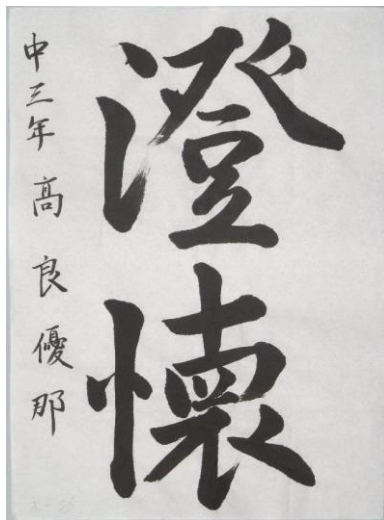 澄懐
中三年 髙良優那